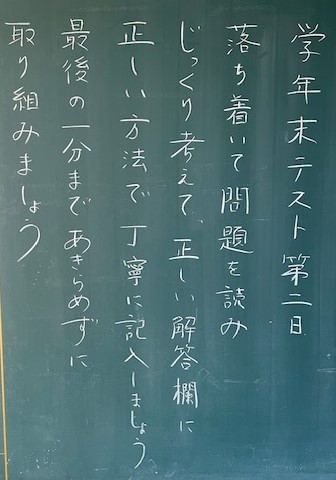 学年末テスト第二日
落ち着いて問題を読み
じっくり考えて、正しい解答欄に
正しい方法で丁寧に記入しましょう
最後の一分まであきらめずに
取り組みましょう